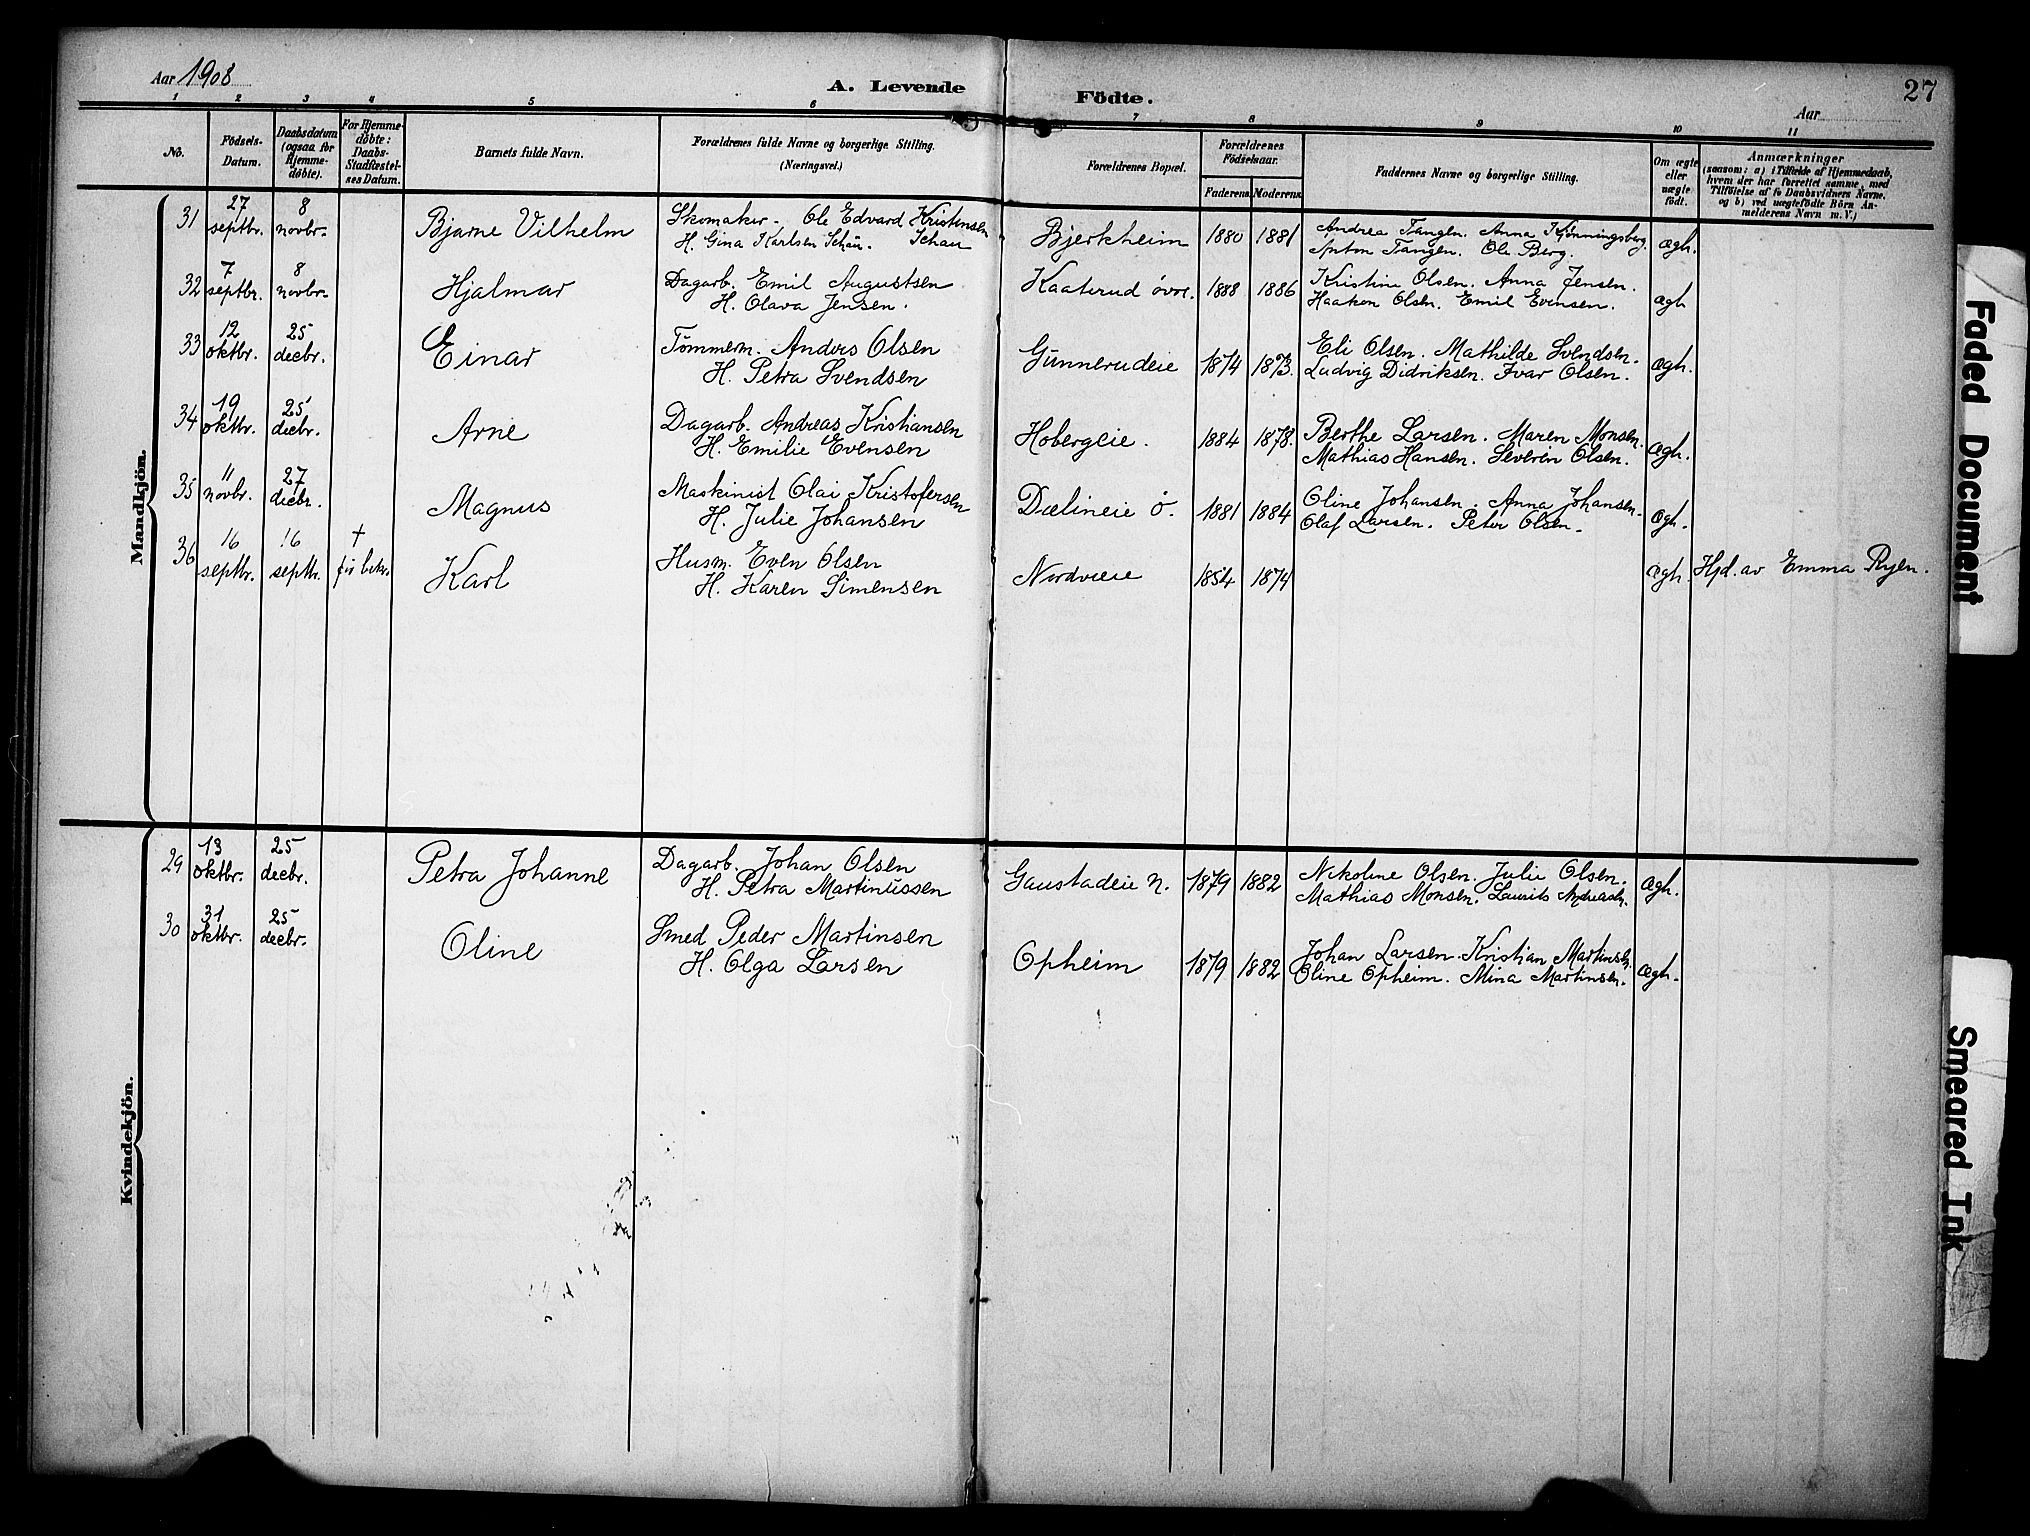 Aar 1908
A. Levende Födte.
Aar
27
1 2 3 4 5 6 7 8 9 10 11
No.
Födsels-Datum.
Daabsdatum (ogsaa for Hjemme-döbte).
For Hjemme-döbte: Daabs-Stadfæstel-ses Datum.
Barnets fulde Navn.
Forældrenes fulde Navne og borgerlige Stilling. (Næringsvei.)
Forældrenes Bopæl.
Forældrenes Födselsaar.
Faderens. Moderens.
Faddernes Navne og borgerlige Stilling.
Om ægte eller uægte födt.
Anmærkninger
(saasom: a) i Tilfælde af Hjemmedaab, hvem der har forrettet samme, med Tilföielse af to Daabsvidners Navne, og b) ved uægtefödte Börn An-melderens Navn m. V.)
Mandkjön.
31 27 septbr. 8 novbr. Bjarne Vilhelm Skomaker. Ole Edvard Kristinsen Schau
H. Gina Karlsen Schau. Bjerkheim 1880 1881 Andrea Tangen. Anna Kjønningsberg
Anton Tangen. Ole Berg. ægh.
32 7 septbr. 8 novbr. Hjalmar Dagarb. Emil Augustsen
H. Olava Jensen. Kaaterud øvre. 1888 1886 Kristine Olsen. Anna Jensen.
Haakon Olsen. Emil Evensen. ægh
33 12 oktbr. 25 decbr. Einar Tømmerm. Anders Olsen
H. Petra Svendsen Gunnerudeie 1874 1873. Eli Olsen. Mathilde Svendsen.
Ludvig Didriksen. Ivar Olsen. ægh.
34 19 oktbr. 25 decbr. Arne Dagarb. Andreas Kristiansen
H. Emilie Evensen Hobergeie. 1884 1878. Berthe Larsen. Maren Monsen.
Mathias Hansen. Severin Olsen. ægh.
35 11 novbr. 27 decbr. Magnus Maskinist Olai Kristofersen
H. Julie Johansen Dælineie ø. 1881 1884 Oline Johansen. Anna Johansen.
Olaf Larsen. Peter Olsen. ægh.
36 16 septbr. 16 septbr. † før bekr. Karl Husm. Even Olsen
H. Karen Simensen Nordveie 1854 1874 ægh. Hjd. av Emma Ryen.
Kvindekjön.
29 13 oktbr. 25 decbr. Petra Johanne Dagarb. Johan Olsen
H. Petra Martiniussen Gaustadeie n. 1879 1882 Nikoline Olsen. Julie Olsen.
Mathias Monsen. Laurits Andreasen. ægh.
30 31 oktbr. 25 decbr. Oline Smed Peder Martinsen
H. Olga Larsen Opheim 1879 1882 Johan Larsen. Kristian Martinsen.
Oline Opheim. Mina Martinsen. ægh.
Faded Document
Smeared Ink